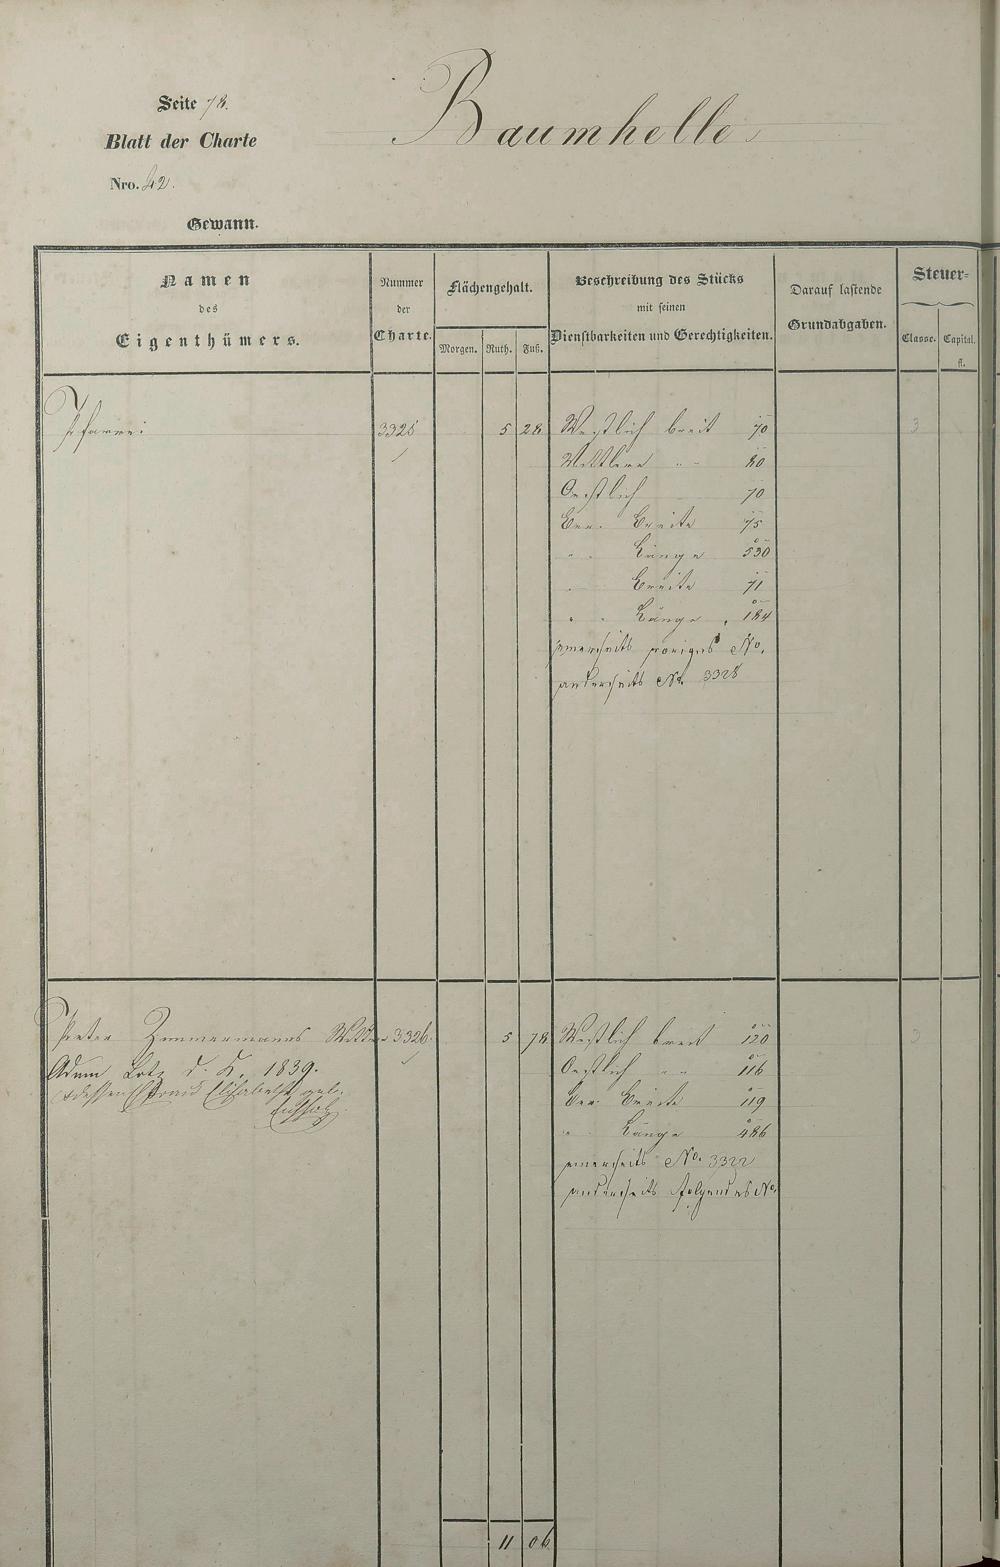 Seite 78.
Baumhelle
Blatt der Charte
Nro. 42.
Gewann.
Namen des Eigenthümers.
Nummer der Charte.
Flächengehalt.
Morgen. Ruth. Fuß.
Beschreibung des Stücks mit seinen Dienstbarkeiten und Gerechtigkeiten.
Darauf lastende Grundabgaben.
Steuer-
Classe. Capital. fl.
Pfarrei 3325 5 28 Westlich breit 70 3
Mittlere " " 80
Oestlich 70
Ber. Breite 75
" " Länge 530
" Breite 71
" " Länge 184
einerseits voriges No.
anderseits No. 3328
Peter Zimmermanns Wittwe 3326 5 78 Westlich breit 120 3
Adam Lotz d. K. 1839. Oestlich " " 116
dessen Frau Elisabeth geb. Ber. Breite 119
" Länge 486
einerseits No. 3322
anderseits folgendes No.
11 06